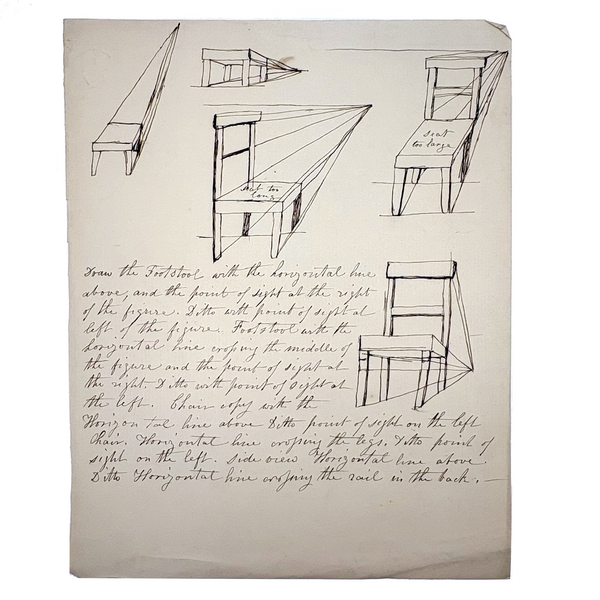 seat
too large
seat too
long
Draw the Footstool with the horizontal line
above, and the point of sight at the right
of the figure. Ditto with point of sight at
left of the figure. Footstool with the
horizontal line crossing the middle of
the figure and the point of sight at
the right. Ditto with point of Sight at
the left. Chair copy with the
Horizontal line above Ditto point of sight on the left
Chair. Horizontal line crossing the legs. Ditto point of
sight on the left. Side view Horizontal line above.
Ditto Horizontal line crossing the rail in the back. —